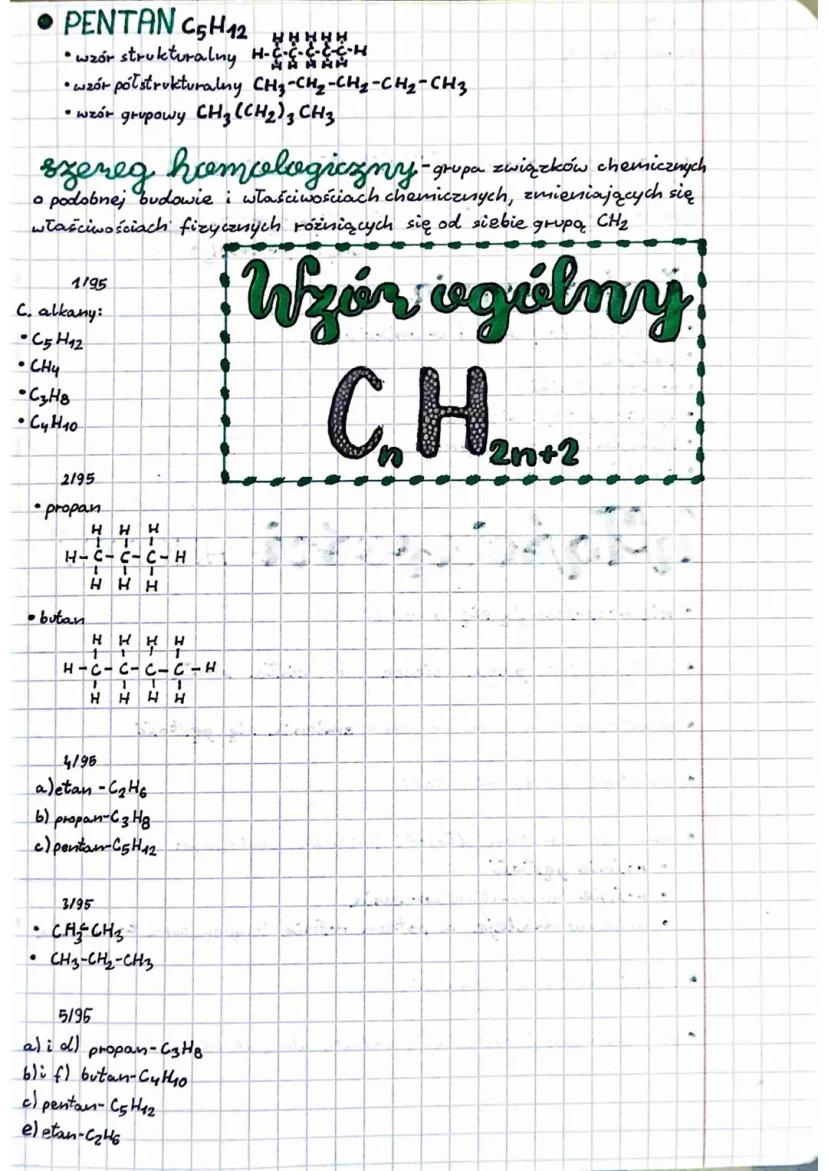 • PENTAN C5H12
• wzór strukturalny
H H H H H
H-C-C-C-C-C-H
H H H H H
• wzór półstrukturalny CH3-CH2-CH2-CH2-CH3
• wzór grupowy CH3(CH2)3CH3
szereg homologiczny - grupa związków chemicznych
o podobnej budowie i właściwościach chemicznych, zmieniających się
właściwościach fizycznych różniących się od siebie grupą CH2
Wzór ogólny
CnH2n+2
1/95
C. alkany:
• C5H12
• CH4
• C3H8
• C4H10
2/95
• propan
H H H
H-C-C-C-H
H H H
• butan
H H H H
H-C-C-C-C-H
H H H H
4/95
a) etan - C2H6
b) propan - C3H8
c) pentan - C5H12
3/95
• CH3-CH3
• CH3-CH2-CH3
5/95
a) i d) propan - C3H8
b) i f) butan - C4H10
c) pentan - C5H12
e) etan - C2H6